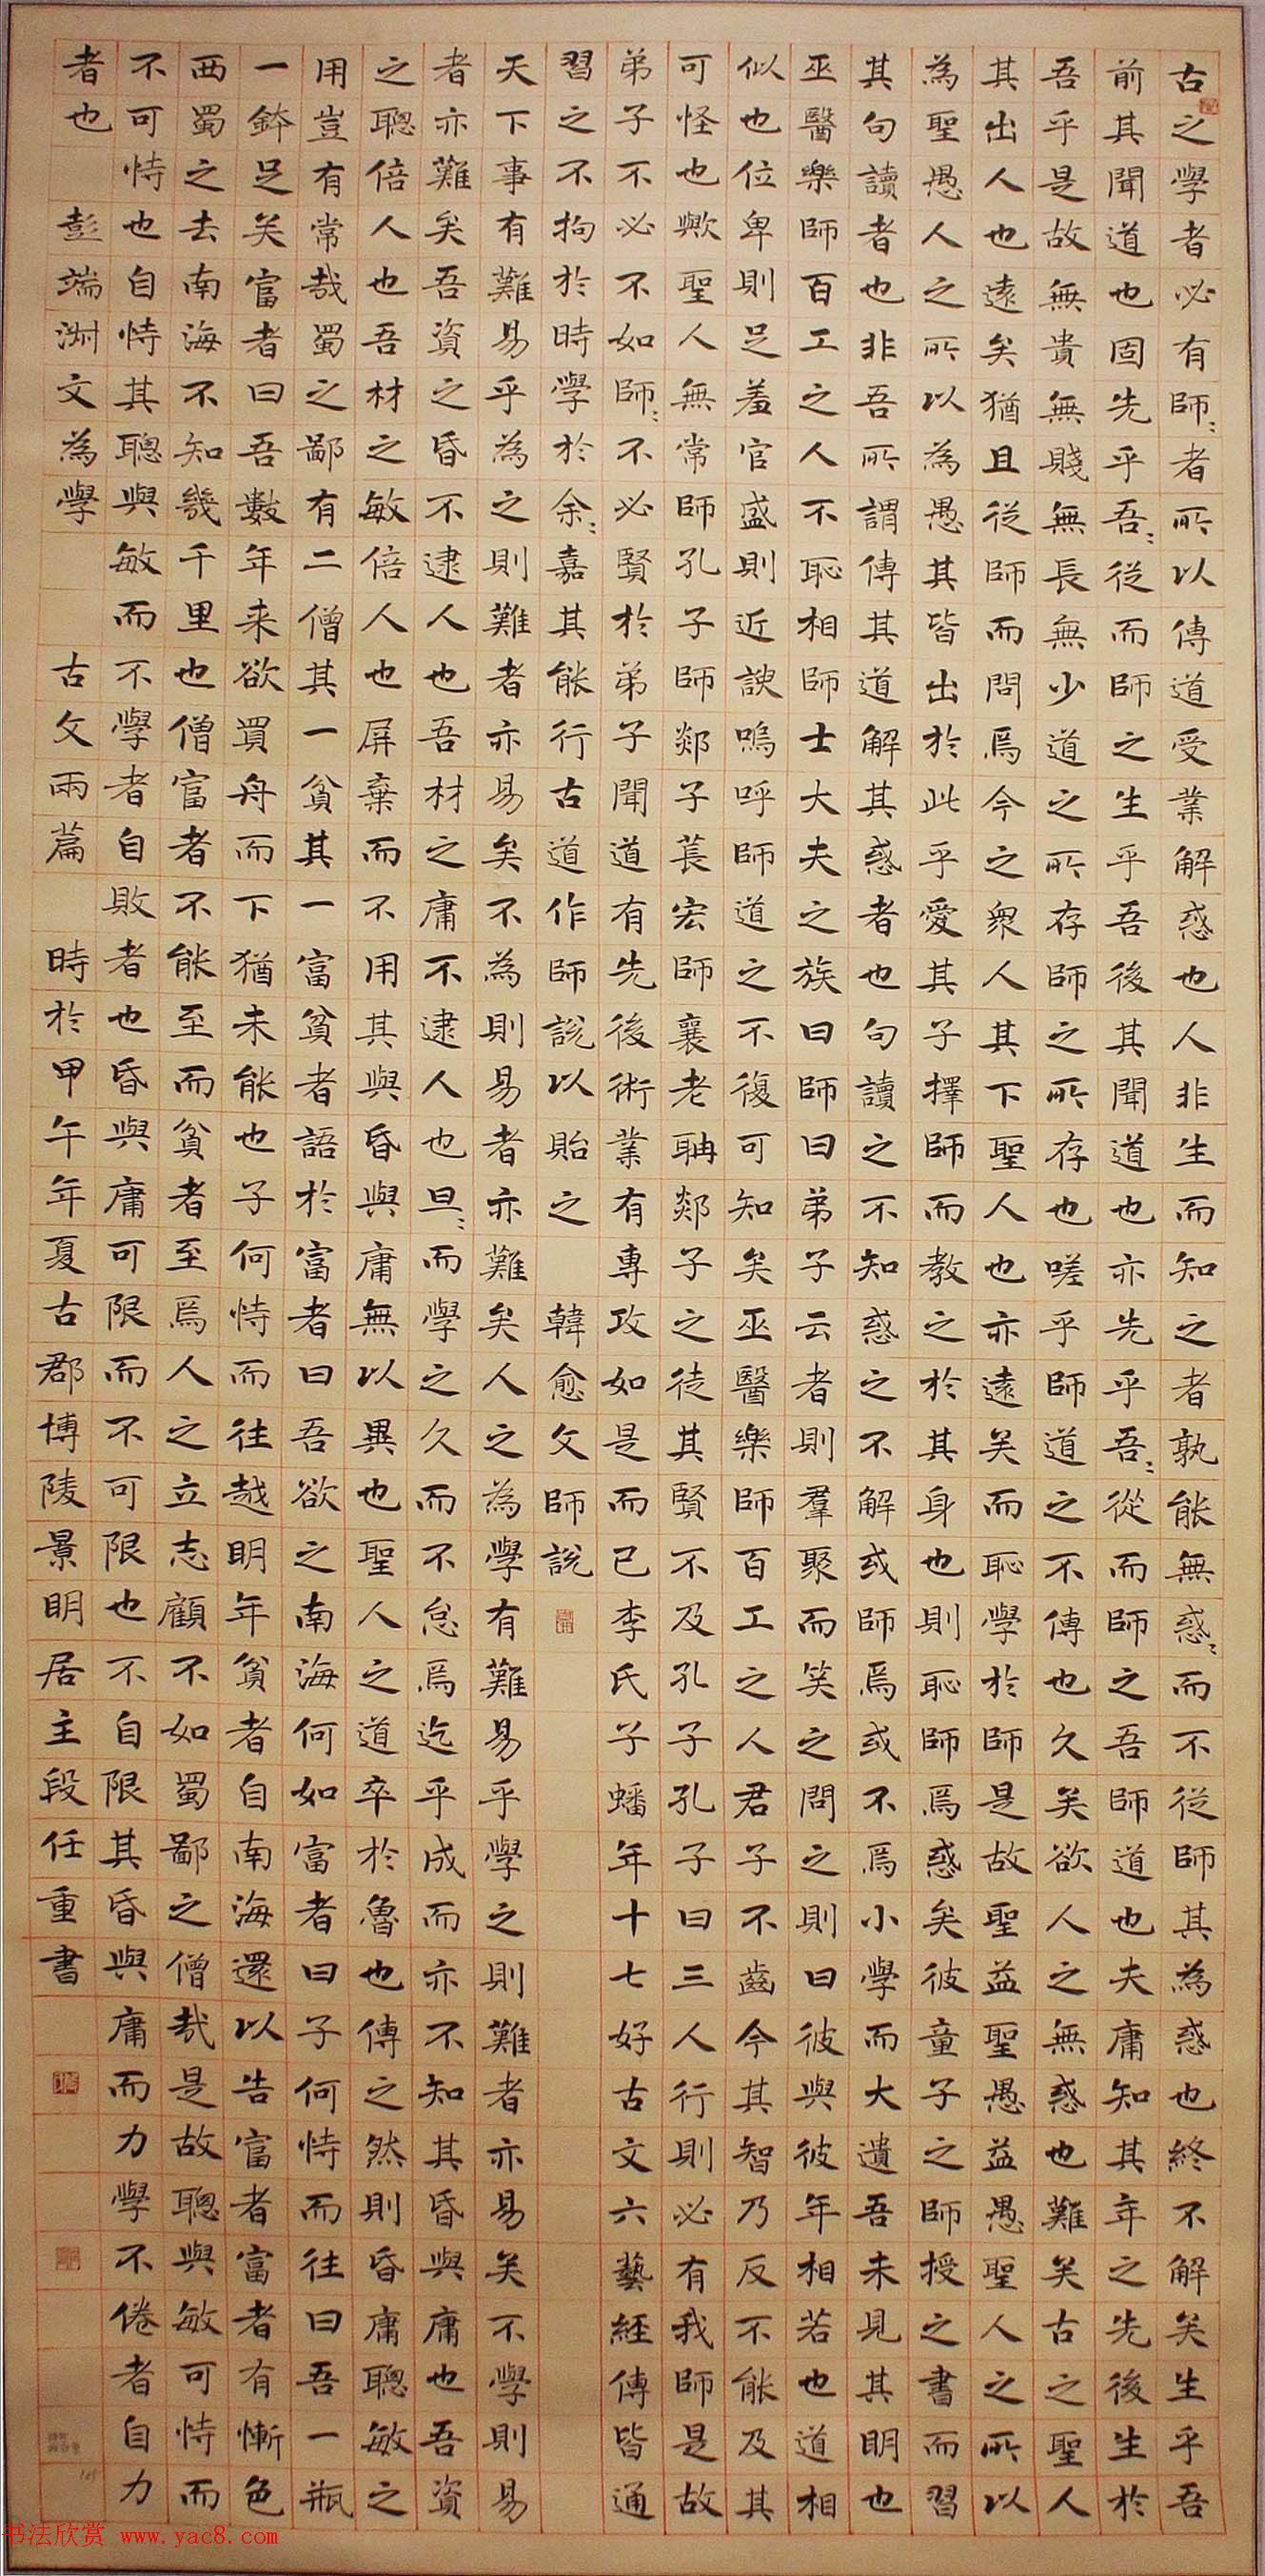 古之學者必有師〻者所以傳道受業解惑也人非生而知之者孰能無惑〻而不從師其為惑也終不解矣生乎吾
前其聞道也固先乎吾〻從而師之生乎吾後其聞道也亦先乎吾〻從而師之吾師道也夫庸知其年之先後生於
吾乎是故無貴無賤無長無少道之所存師之所存也嗟乎師道之不傳也久矣欲人之無惑也難矣古之聖人
其出人也遠矣猶且從師而問焉今之衆人其下聖人也亦遠矣而恥學於師是故聖益聖愚益愚聖人之所以
為聖愚人之所以為愚其皆出於此乎愛其子擇師而教之於其身也則恥師焉惑矣彼童子之師授之書而習
其句讀者也非吾所謂傳其道解其惑者也句讀之不知惑之不解或師焉或不焉小學而大遺吾未見其明也
巫醫樂師百工之人不恥相師士大夫之族曰師曰弟子云者則羣聚而笑之問之則曰彼與彼年相若也道相
似也位卑則足羞官盛則近諛嗚呼師道之不復可知矣巫醫樂師百工之人君子不齒今其智乃反不能及其
可怪也歟聖人無常師孔子師郯子萇宏師襄老聃郯子之徒其賢不及孔子孔子曰三人行則必有我師是故
弟子不必不如師〻不必賢於弟子聞道有先後術業有專攻如是而已李氏子蟠年十七好古文六藝經傳皆通
習之不拘於時學於余〻嘉其能行古道作師說以貽之 韓愈文師說
天下事有難易乎為之則難者亦易矣不為則易者亦難矣人之為學有難易乎學之則難者亦易矣不學則易
者亦難矣吾資之昏不逮人也吾材之庸不逮人也旦〻而學之久而不怠焉迄乎成而亦不知其昏與庸也吾資
之聰倍人也吾材之敏倍人也屏棄而不用其與昏與庸無以異也聖人之道卒於魯也傳之然則昏庸聰敏之
用豈有常哉蜀之鄙有二僧其一貧其一富貧者語於富者曰吾欲之南海何如富者曰子何恃而往曰吾一瓶
一鉢足矣富者曰吾數年来欲買舟而下猶未能也子何恃而往越明年貧者自南海還以告富者富者有慚色
西蜀之去南海不知幾千里也僧富者不能至而貧者至焉人之立志顧不如蜀鄙之僧哉是故聰與敏可恃而
不可恃也自恃其聰與敏而不學者自敗者也昏與庸可限而不可限也不自限其昏與庸而力學不倦者自力
者也 彭端淑文為學 古文兩篇 時於甲午年夏古郡博陵景明居主段任重書
书法欣赏 www.yac8.com